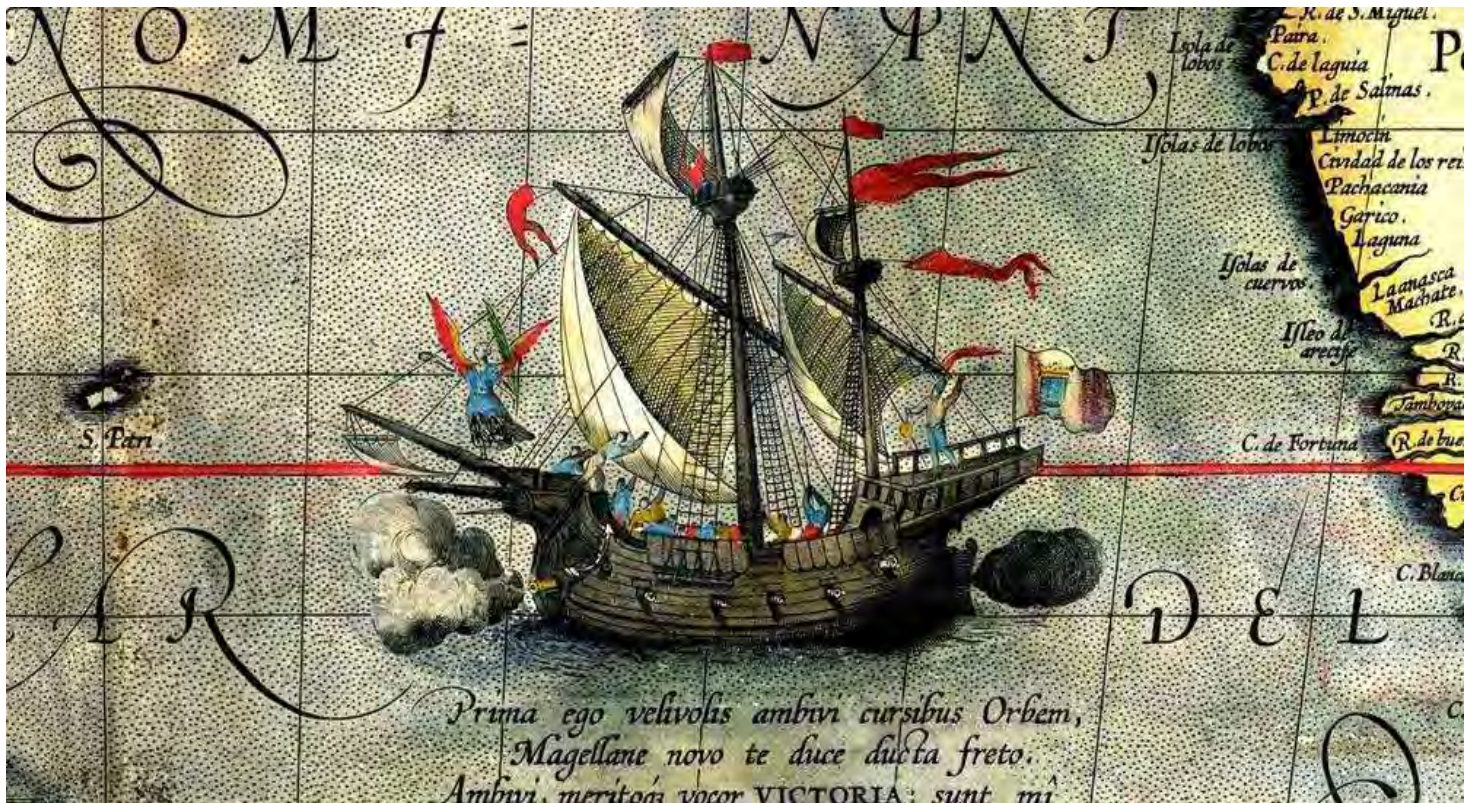 NOMI=NANT,
R. de S. Miguel.
Isola de
lobos
Paira.
C. de laguia
P. de Salinas.
Isolas de lobos
Limocin
Cividad de los rei
Pachacania
Garico.
Laguna
Isolas de
cuervos
Laanasca
Machate.
Isleo de
arecife
S. Petri
C. de Fortuna
R. de bue
AR DEL
C. Blanc
Prima ego velivolis ambivi cursibus Orbem,
Magellane novo te duce ducta freto.
Ambivi, meritoq́ vocor VICTORIA: sunt mî